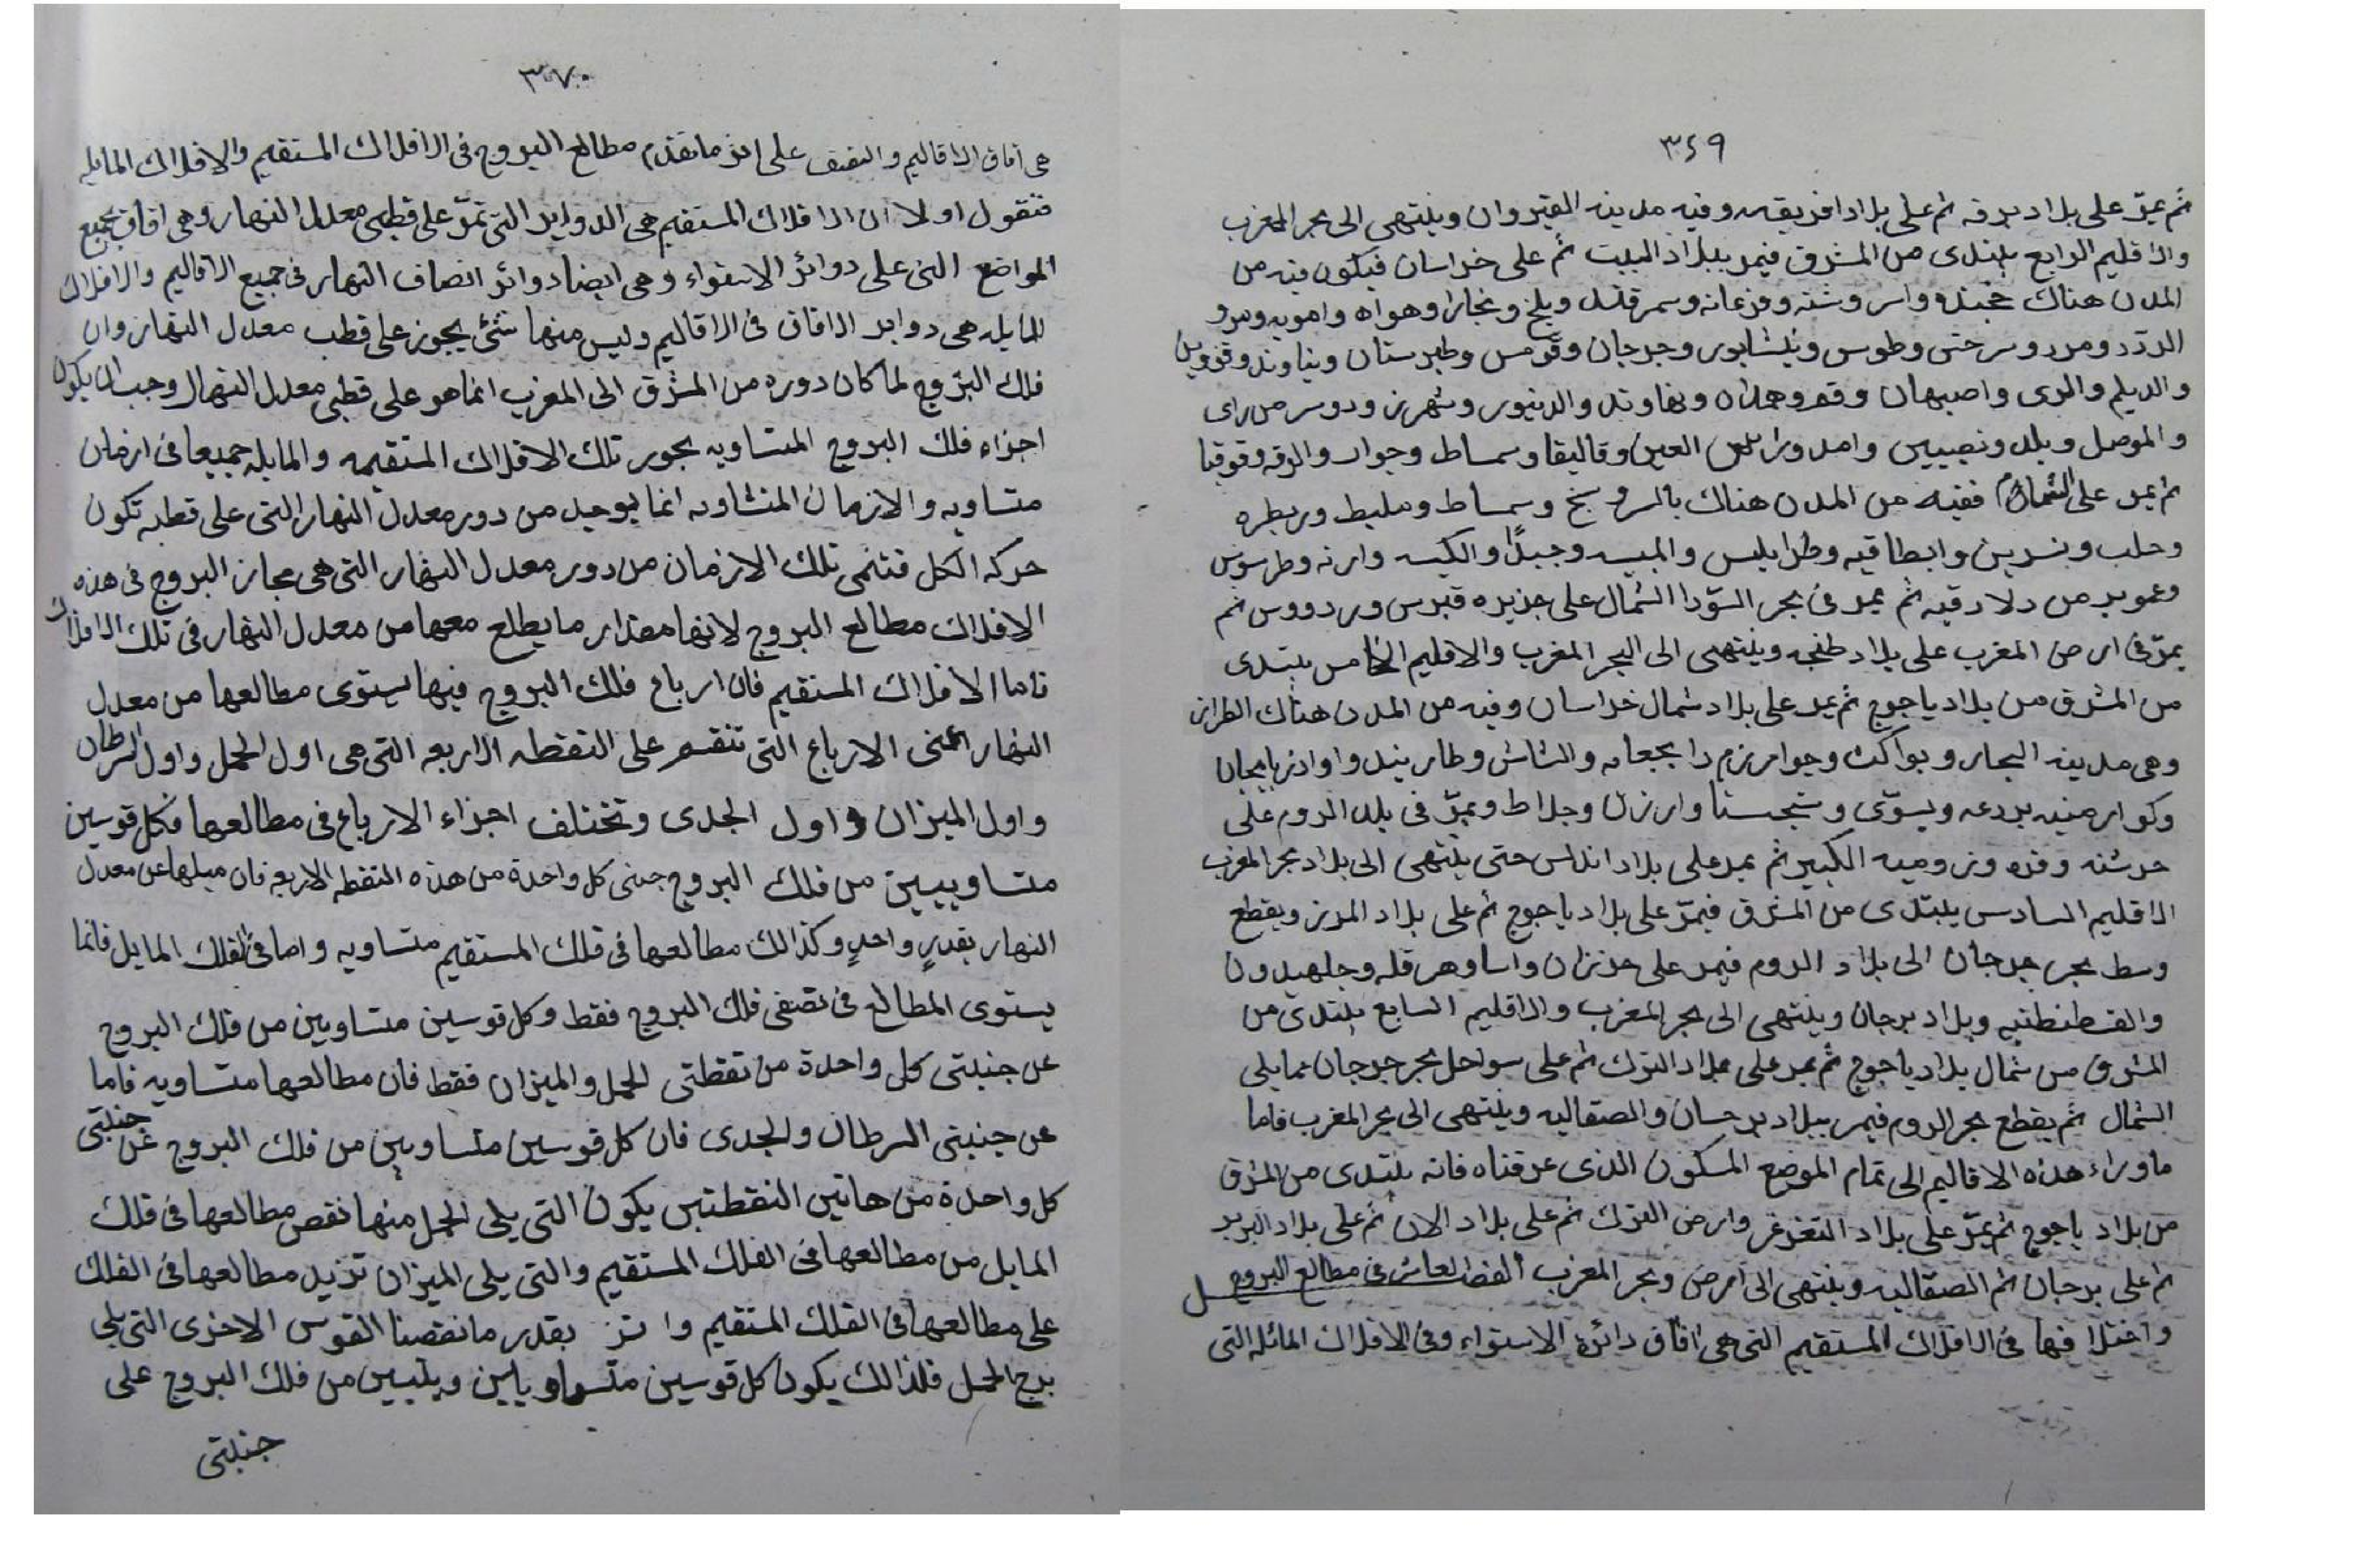 ٣٤٩
ثم يمرّ على بلاد برقه ثم على بلاد افريقيه وفيه مدينه القيروان وينتهى الى بحر المغرب
والاقليم الرابع يبتدى من المشرق فيمر ببلاد البيت ثم على خراسان فيكون فيه من
المدن هناك خجنده واسروشنه وفرغانه وسمرقند وبلخ وبخارا وهراه وامويه ومرو
الرّد ومرو وسرخس وطوس ونيشابور وجرجان وقومس وطبرستان وقزوين
والديلم والرى واصبهان وقم وهمدان ونهاوند والدينور وشهرزور وسر من راى
والموصل وبلد ونصيبين وامد وراس العين وقاليقلا وسمساط والرقه
ثم يمر على الشمال ففيه من المدن هناك وسمساط ومليط
وحلب وانطاقيه وطرابلس وطرسوس
وعموريه من دلادقيه ثم يمر فى بحر السّودا الشمال على جزيره قبرس ورودوس ثم
يمرّ فى ارض المغرب على بلاد طنجه وينتهى الى البحر المغرب والاقليم الخامس يبتدى
من المشرق من بلاد ياجوج ثم يمر على بلاد شمال خراسان وفيه من المدن هناك الطراز
وهى مدينه البحار والشاش واذربايجان
وكور ارمنيه بردعه وارزن ويمرّ فى بلد الروم على
خرشنه وقره وروميه الكبير ثم يمر على بلاد اندلس حتى ينتهى الى بلاد بحر المغرب
الاقليم السادس يبتدى من المشرق فيمرّ على بلاد ياجوج ثم على بلاد ويقطع
وسط بحر جرجان الى بلاد الروم فيمر على
والقسطنطنيه وبلاد برجان وينتهى الى بحر المغرب والاقليم السابع يبتدى من
المشرق من شمال بلاد ياجوج ثم يمر على بلاد الترك ثم على سواحل بحر جرجان مما يلى
الشمال ثم يقطع بحر الروم فيمر ببلاد والصقاليه وينتهى الى بحر المغرب فاما
ماوراء هذه الاقاليم الى تمام الموضع المسكون الذى عرفناه فانه يبتدى من المشرق
من بلاد ياجوج ثم يمرّ على بلاد التغزغر وارض الترك ثم على بلاد الان ثم على بلاد البربر
ثم على برجان ثم الصقاليه وينتهى الى ارض وبحر المغرب الفصل العاشر فى مطالع البروج
واختلافها فى الافلاك المستقيم التى هى افاق دائرة الاستواء وفى الافلاك المائله التى
٣٧٠
هى افاق الاقاليم على اثر ماتقدم مطالع البروج فى الافلاك المستقيم والافلاك المايله
فنقول اولا ان الافلاك المستقيم هى الدواير التى تمرّ على قطبى معدل النهار وهى افاق بجميع
المواضع التى على دوائر الاستواء وهى ايضا دوائر انصاف النهار فى جميع الاقاليم والافلاك
المايله هى دواير الافاق فى الاقاليم وليس منها شئ يجوز على قطب معدل النهار وان
فلك البروج لما كان دوره من المشرق الى المغرب انما هو على قطبى معدل النهار وجب ان يكون
اجزاء فلك البروج المتساويه بجوز تلك الافلاك المستقيمه والمايله جميعا فى ازمان
متساويه والازمان المتساويه انما يوجد من دور معدل النهار التى على قطبه تكون
حركه الكل فتسمى تلك الازمان من دور معدل النهار التى هى مجاز البروج فى هذه
الافلاك مطالع البروج لانها مقدار ما يطلع معها من معدل النهار فى تلك الافلاك
فاما الافلاك المستقيم فان ارباع فلك البروج فيها يستوى مطالعها من معدل
النهار اعنى الارباع التى تنقسم على النقطه الاربعه التى هى اول الحمل واول السرطان
واول الميزان واول الجدى وتختلف اجزاء الارباع فى مطالعها فكل قوسين
متساويين من فلك البروج جنبى كل واحدة من هذه النقطه الاربعه فان ميلها عن معدل
النهار بقدرٍ واحدٍ وكذالك مطالعها فى فلك المستقيم متساويه واما فى الفلك المايل فانما
يستوى المطالع فى نصفى فلك البروج فقط وكل قوسين متساويين من فلك البروج
عن جنبتى كل واحدة من نقطتى الحمل والميزان فقط فان مطالعها متساويه فاما
عن جنبتى السرطان والجدى فان كل قوسين متساويين من فلك البروج عن جنبتى
كل واحدة من هاتين النقطتين يكون التى يلى الحمل منها نقص مطالعها فى فلك
المايل من مطالعها فى الفلك المستقيم والتى يلى الميزان تزيد مطالعها فى الفلك
على مطالعها فى الفلك المستقيم بقدر مانقصنا القوس الاخرى التى يلى
برج الحمل فلذالك يكون كل قوسين من فلك البروج على
جنبتى